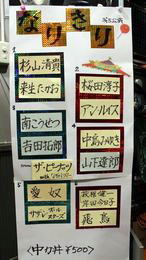 なりきり
1
杉山清貴
来生たかお
2
桜田淳子
アン・ルイス
3
南こうせつ
吉田拓郎
ザ・ピーナッツ
4
中島みゆき
山下達郎
5
愛奴
サザンオールスターズ
6
飛鳥
<中弁 ¥500>